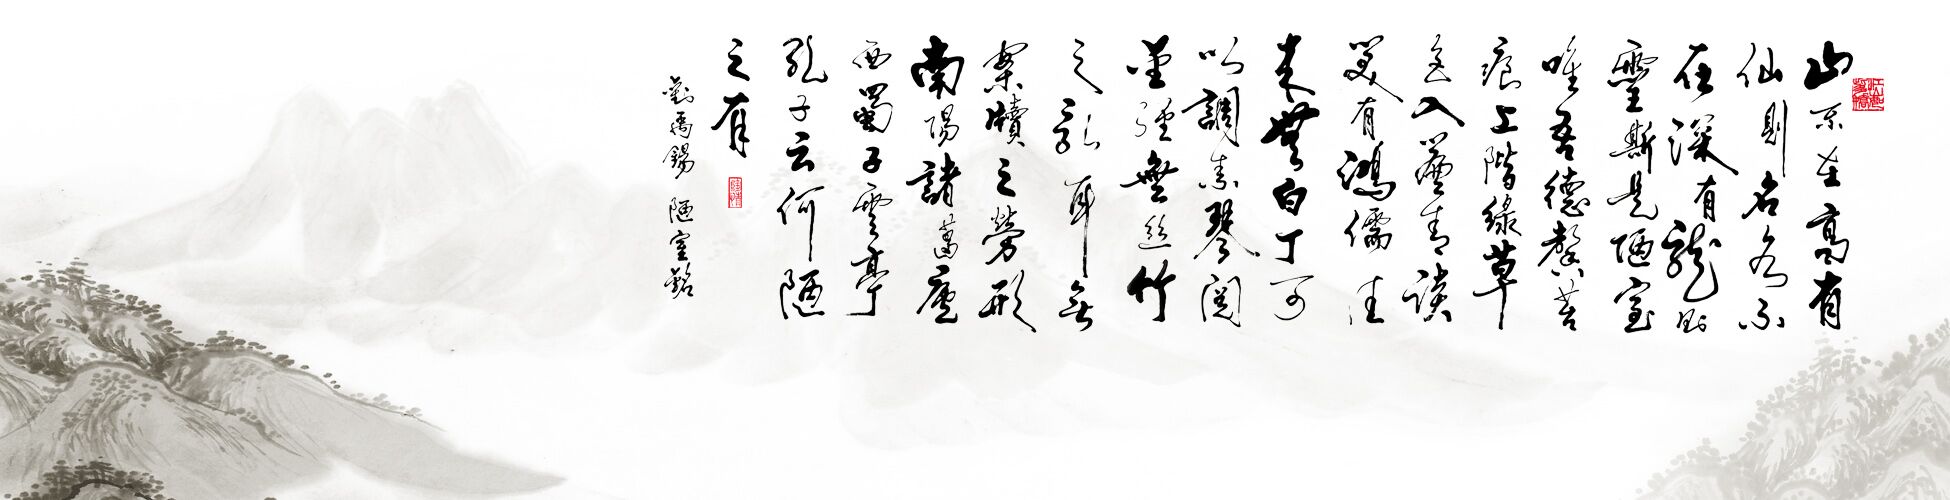 山不在高有
仙則名水不
在深有龍則
靈斯是陋室
唯吾德馨苔
痕上階綠草
色入簾青談
笑有鴻儒往
来無白丁可
以調素琴閱
金經無絲竹
之乱耳無
案牘之勞形
南陽諸葛廬
西蜀子雲亭
孔子云何陋
之有
劉禹錫 陋室銘